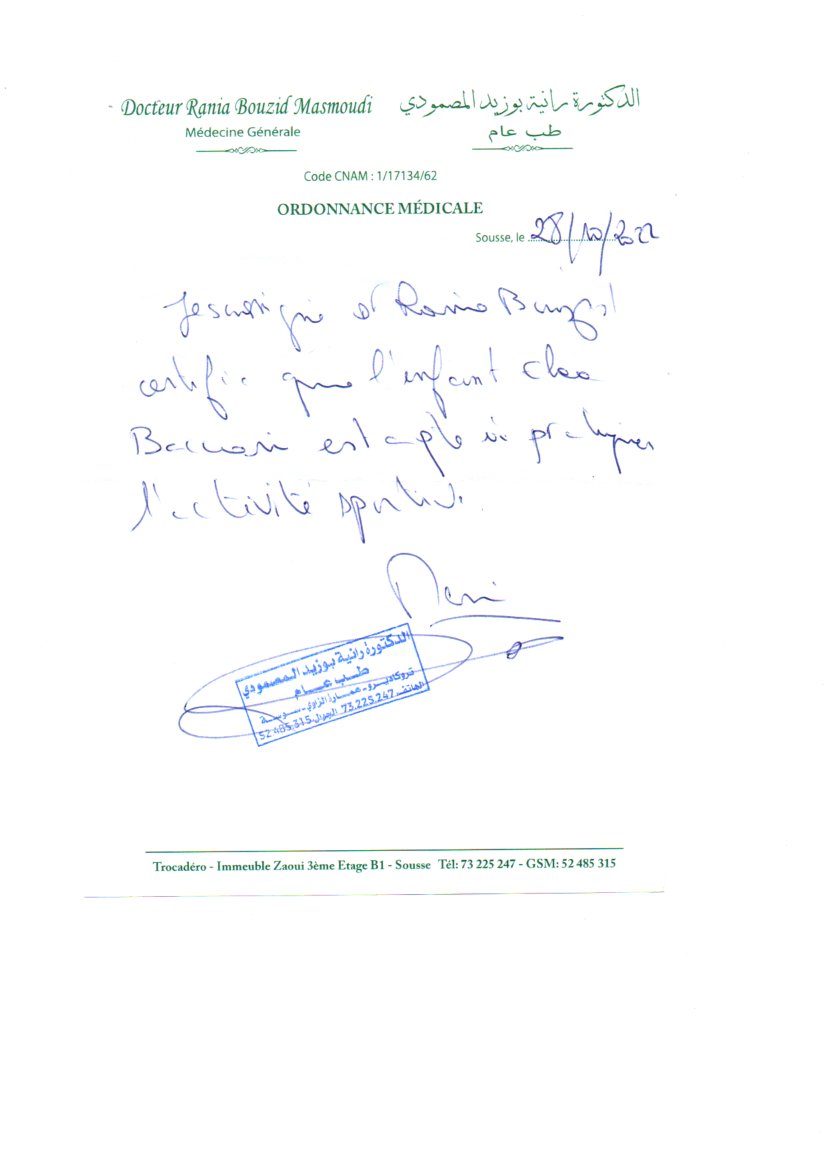 Docteur Rania Bouzid Masmoudi
الدكتورة رانية بوزيد المصمودي
Médecine Générale
طب عام
Code CNAM : 1/17134/62
ORDONNANCE MÉDICALE
Sousse, le 28/10/2022
Je soussigné dr Rania Bouzid
certifie que l'enfant
est apte à pratiquer
l'activité sportive.
الدكتورة رانية بوزيد المصمودي
طب عام
تروكاديرو - عمارة الزاوي - سوسة
الهاتف 73.225.247 الجوال 52.485.315
Trocadéro - Immeuble Zaoui 3ème Etage B1 - Sousse Tél: 73 225 247 - GSM: 52 485 315